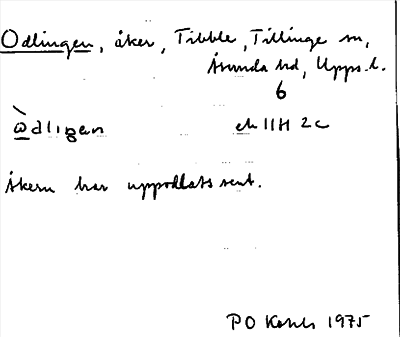 Odlingen, åker, Tibble, Tillinge sn,
Åsunda hd, Upps. l.
6
ὼdlıgen ek 11H 2c
Åkern har uppodlats sent.
PO 1975